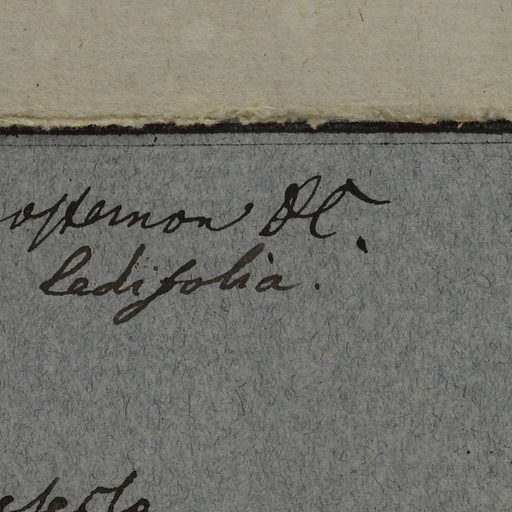 osternon DC.
ledifolia.